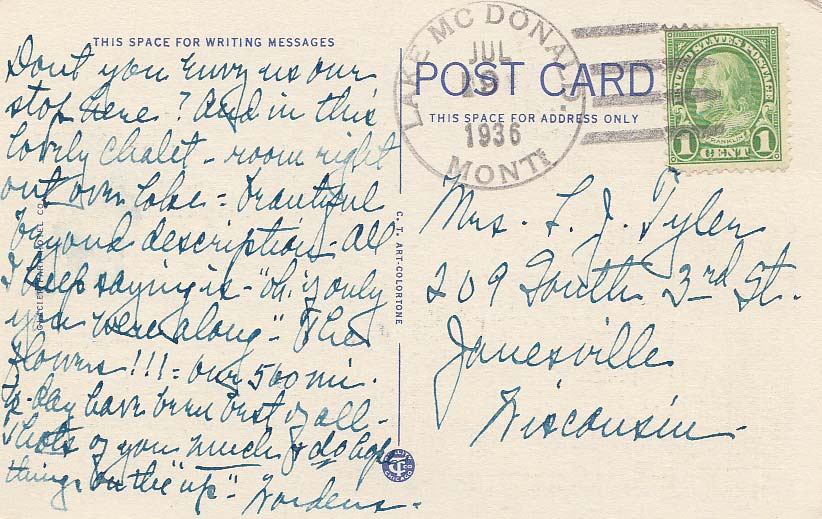 THIS SPACE FOR WRITING MESSAGES
Dont you envy us our
stop here? And in this
lovely chalet - room right
out over lake = Beautiful
beyond description - All
I keep saying is - "oh, if only
you were along" - The
flowers!!! = Our 560 mi.
to-day have been best of all -
Thots of you much & do hope
things on the "up" - Wordens -
C. T. ART-COLORTONE
LAKE MC DONALD,
JUL
1936
MONT.
POST CARD
THIS SPACE FOR ADDRESS ONLY
UNITED STATES POSTAGE
FRANKLIN
1 CENT 1
Mrs. L. J. Tyler
209 South 3rd St.
Janesville
Wisconsin -